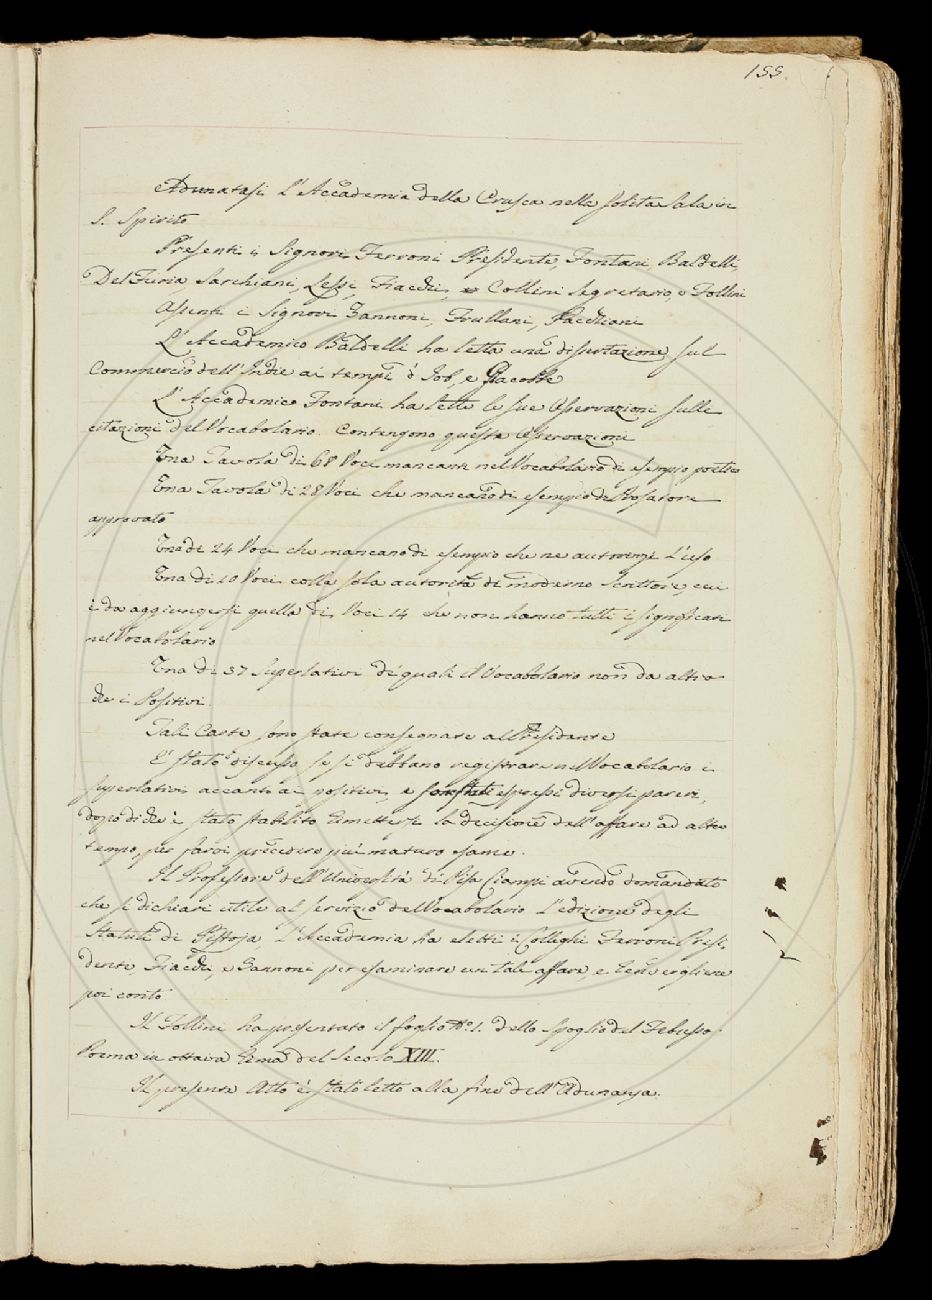 155.
Adunatasi l'Accademia della Crusca nella solita Sala in
S. Spirito
Presenti i Signori Ferroni Presidente, Fontani, Baldelli,
Del Furia Sarchiani, Lessi, Fiacchi, e Collini Segretario, e Follini
Assenti i Signori Zannoni, Frullani, Pacchiani
L'Accademico Baldelli ha letta una dissertazione sul
Commercio dell'Indie ai tempi di Job, e Giacobbe
L'Accademico Fontani ha lette le sue Osservazioni sulle
citazioni del Vocabolario. Contengono queste Osservazioni
Una Tavola di 68 Voci mancanti nel Vocabolario di esempio poetico
Una Tavola di 28 Voci che mancano di esempio di Prosatore
approvato
Una di 24 Voci che mancano di esempio che ne autorizzi l'uso
Una di 10 Voci colla sola autorità di moderno Scrittore, cui
è da aggiungersi quella di Voci 14 che non hanno tutti i significati
nel Vocabolario
Una di 57 Superlativi de' quali il Vocabolario non dà altro
che i Positivi.
Tali Carte sono state consegnate al Presidente
E' stato discusso se si debbano registrare nel Vocabolario i
superlativi accanto ai positivi, e sono stati espressi diversi pareri,
dopo di che è stato stabilito rimettersi la decisione dell'affare ad altro
tempo, per farvi precedere più maturo esame.
Il Professore dell'Università di Pisa Ciampi avendo domandato
che si dichiari utile al servizio del Vocabolario l'edizione degli
Statuti di Pistoja, l'Accademia ha eletti i Colleghi Ferroni Presi,
dente, Fiacchi, e Zannoni per esaminare un tale affare, e
poi conto
Il Follini ha presentato il foglio N.° 1. dello Spoglio del Febusso
Poema in ottava Rima del Secolo XIII.
Il presente Atto è stato letto alla fine dell'Adunanza.